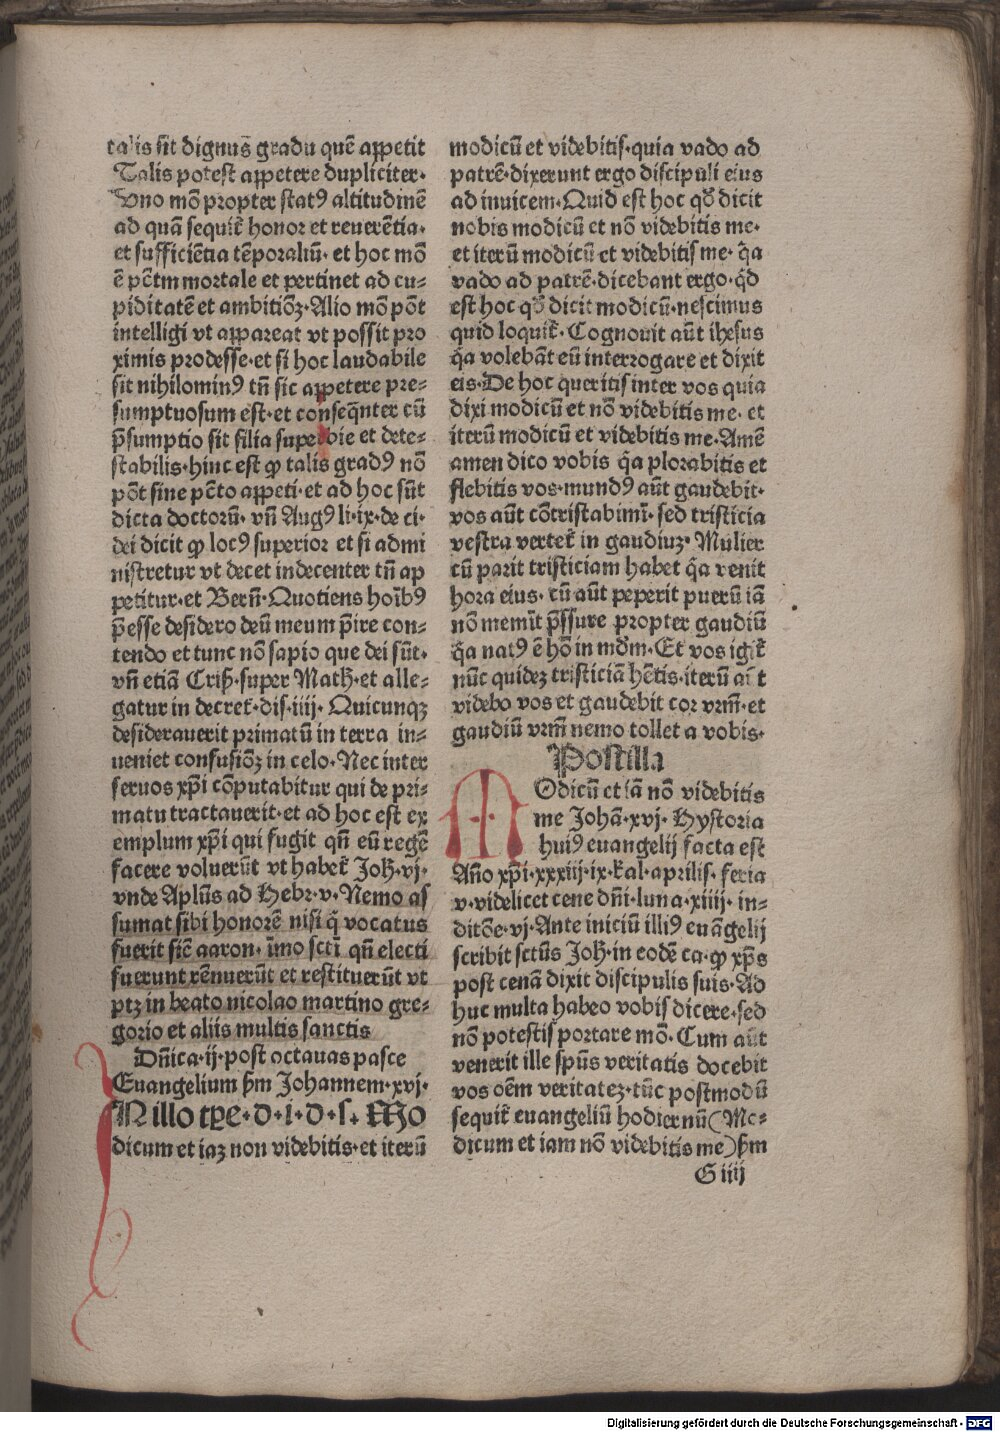 talis sit dignus gradu quē appetit
Talis potest appetere dupliciter·
Uno mō propter statꝰ altitudinē
ad quā sequit̄ honor et reuerētia·
et sufficiētia tēporaliū· et hoc mō
ē pctm̄ mortale et pertinet ad cu-
piditatē et ambitiōꝫ· Alio mō pōt
intelligi vt appareat vt possit pro
ximis prodesse·et si hoc laudabile
sit nihilominꝰ tn̄ sic appetere pre-
sumptuosum est·et conseqn̄ter cū
p̄sumptio sit filia superbie et dete-
stabilis·hinc est ꝙ talis gradꝰ nō
pōt sine pctō appeti·et ad hoc sūt
dicta doctorū· vn̄ Augꝰ li·ix·de ci·
dei dicit ꝙ locꝰ superior et si admi
nistretur vt decet indecenter tn̄ ap
petitur·et Bern̄·Quotiens hoībꝰ
p̄esse desidero deū meum p̄ire con-
tendo et tunc nō sapio que dei sūt·
vn̄ etiā Criß·super Math̄·et alle-
gatur in decret̄·dis·iiij· Quicunqꝫ
desiderauerit primatū in terra in-
ueniet confusiōꝫ in celo·Nec inter
seruos xp̄i cōputabitur qui de pri-
matu tractauerit·et ad hoc est ex
emplum xp̄i qui fugit qn̄ eū regē
facere voluerūt vt habet̄ Joh̄·vj·
vnde Apl̄us ad Hebr·v·Nemo as
sumat sibi honorē nisi q̄ vocatus
fuerit sic̄ aaron·īmo sctī qn̄ electi
fuerunt rēnuerūt et restituerūt vt
ptꝫ in beato nicolao martino gre-
gorio et aliis multis sanctis
Dn̄ica·ij·post octauas pasce
Euangelium ẜm Johannem·xvj·
N illo tꝑe·d·i·d·s· Mo
dicum et iaꝫ non videbitis·et iterū
modicū et videbitis·quia vado ad
patrē·dixerunt ergo discipuli eius
ad inuicem·Quid est hoc qđ dicit
nobis modicū et nō videbitis me·
et iterū modicū et videbitis me· q̄a
vado ad patrē·dicebant ergo·q̄d
est hoc qđ dicit modicū·nescimus
quid loquit̄· Cognouit aūt ihesus
q̄a volebāt eū interrogare et dixit
eis·De hoc queritis inter vos quia
dixi modicū et nō videbitis me· et
iterū modicū et videbitis me·Amē
amen dico vobis q̄a plorabitis et
flebitis vos·mundꝰ aūt gaudebit·
vos aūt cōtristabimī· sed tristicia
vestra vertet̄ in gaudiuꝫ· Mulier
cū parit tristiciam habet q̄a venit
hora eius· cū aūt peperit puerū iā
nō memīt p̄ssure propter gaudiū
q̄a natꝰ ē hō in mdm̄·Et vos igit̄
nūc quideꝫ tristiciā hētis·iterū aūt
videbo vos et gaudebit cor vrm̄·et
gaudiū vrm̄ nemo tollet a vobis·
Postilla
Odicū et iā nō videbitis
me Johā·xvj· Hystoria
huiꝰ euangelij facta est
Āno xp̄i·xxxiij·ix·kal·aprilis·feria
v·videlicet cene dn̄i·luna·xiiij·in-
ditōe·vj·Ante iniciū illiꝰ euāgelij
scribit sctūs Joh̄·in eodē ca·ꝙ xp̄s
post cenā dixit discipulis suis·Ad
huc multa habeo vobis dicere·sed
nō potestis portare mō·Cum aūt
venerit ille spūs veritatis docebit
vos oēm veritateꝫ·tūc postmodū
sequit̄ euangeliū hodiernū(Mo-
dicum et iam nō videbitis me)ẜm
G iiij
Digitalisierung gefördert durch die Deutsche Forschungsgemeinschaft - DFG